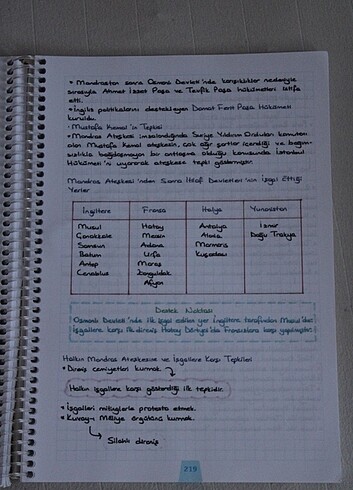 • Mondrostan sonra Osmanlı Devleti'nde karışıklıklar nedeniyle
sırasıyla Ahmet İzzet Paşa ve Tevfik Paşa hükümetleri istifa
etti.
• İngiliz politikalarını destekleyen Damat Ferit Paşa Hükümeti
kuruldu.
- Mustafa Kemal'in Tepkisi
• Mondros Ateşkesi imzalandığında Suriye Yıldırım Orduları komutanı
olan Mustafa Kemal ateşkesin, çok ağır şartlar içerdiği ve bağım-
sızlıkla bağdaşmayan bir antlaşma olduğu konusunda İstanbul
Hükümeti'ni uyararak ateşkese tepki göstermiştir.
Mondros Ateşkesi'nden Sonra İtilaf Devletleri'nin İşgal Ettiği
Yerler
İngiltere Fransa İtalya Yunanistan
Musul Hatay Antalya İzmir
Çanakkale Mersin Alanya Doğu Trakya
Samsun Adana Marmaris
Batum Urfa Kuşadası
Antep Maraş
Cerablus Zonguldak
Afyon
Destek Noktası
Osmanlı Devleti'nde ilk işgal edilen yer İngiltere tarafından Musul'dur.
İşgallere karşı ilk direniş Hatay Dörtyol'da Fransızlara karşı yapılmıştır.
Halkın Mondros Ateşkesine ve İşgallere Karşı Tepkileri
• Direniş cemiyetleri kurmak.
Halkın işgallere karşı gösterdiği ilk tepkidir.
• İşgalleri mitinglerle protesto etmek.
• Kuvay-ı Milliye örgütünü kurmak.
Silahlı direniş
219